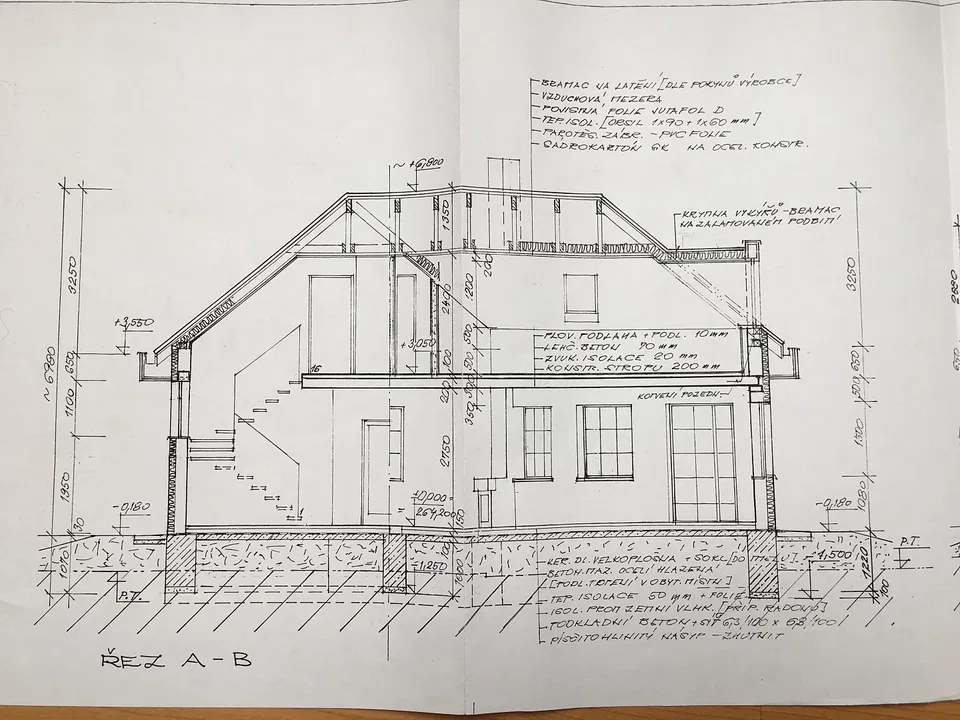 BRAMAC NA LATĚNÍ [DLE POKYNŮ VÝROBCE]
VZDUCHOVÁ MEZERA
POJISTNÁ FOLIE JUTAFOL D
TEP. ISOL. [ORSIL 1x90 + 1x60 mm]
PAROTĚS. ZÁBR. - PVC FOLIE
SÁDROKARTÓN GK NA OCEL. KONSTR.
~ +6,800
KRYTINA VIKÝŘŮ - BRAMAC
NA ZALAMOVANÉM PODBITÍ
1350
200
3250
3250
1200
2400
+3,550
+3,050
PLOV. PODLAHA + PODL. 10mm
LEHČ. BETON 90 mm
ZVUK. ISOLACE 20 mm
KONSTR. STROPU 200 mm
KOTVENÍ POZEDN.
~ 6980
650
1100
650
500
500
500
100
200
300
350
2750
1300
1950
1080
±0,000
264,200
150
-0,180
-0,180
30
1070
P.T.
P.T.
-1,250
-1,500
1220
100
KER. DL. VELKOPLOŠNÁ + SOKL [DO TMELU]
BETON. MAZ. OCELÍ HLAZENÁ
[PODL. TOPENÍ V OBYT. MÍSTN.]
TEP. ISOLACE 50 mm + FOLIE
ISOL. PROTI ZEMNÍ VLHK. [PŘÍP. RADONU]
PODKLADNÍ BETON + SÍŤ 6,3/100 x 6,3/100
PÍSČITOHLINITÝ NÁSYP - ZHUTNIT
ŘEZ A-B
2880